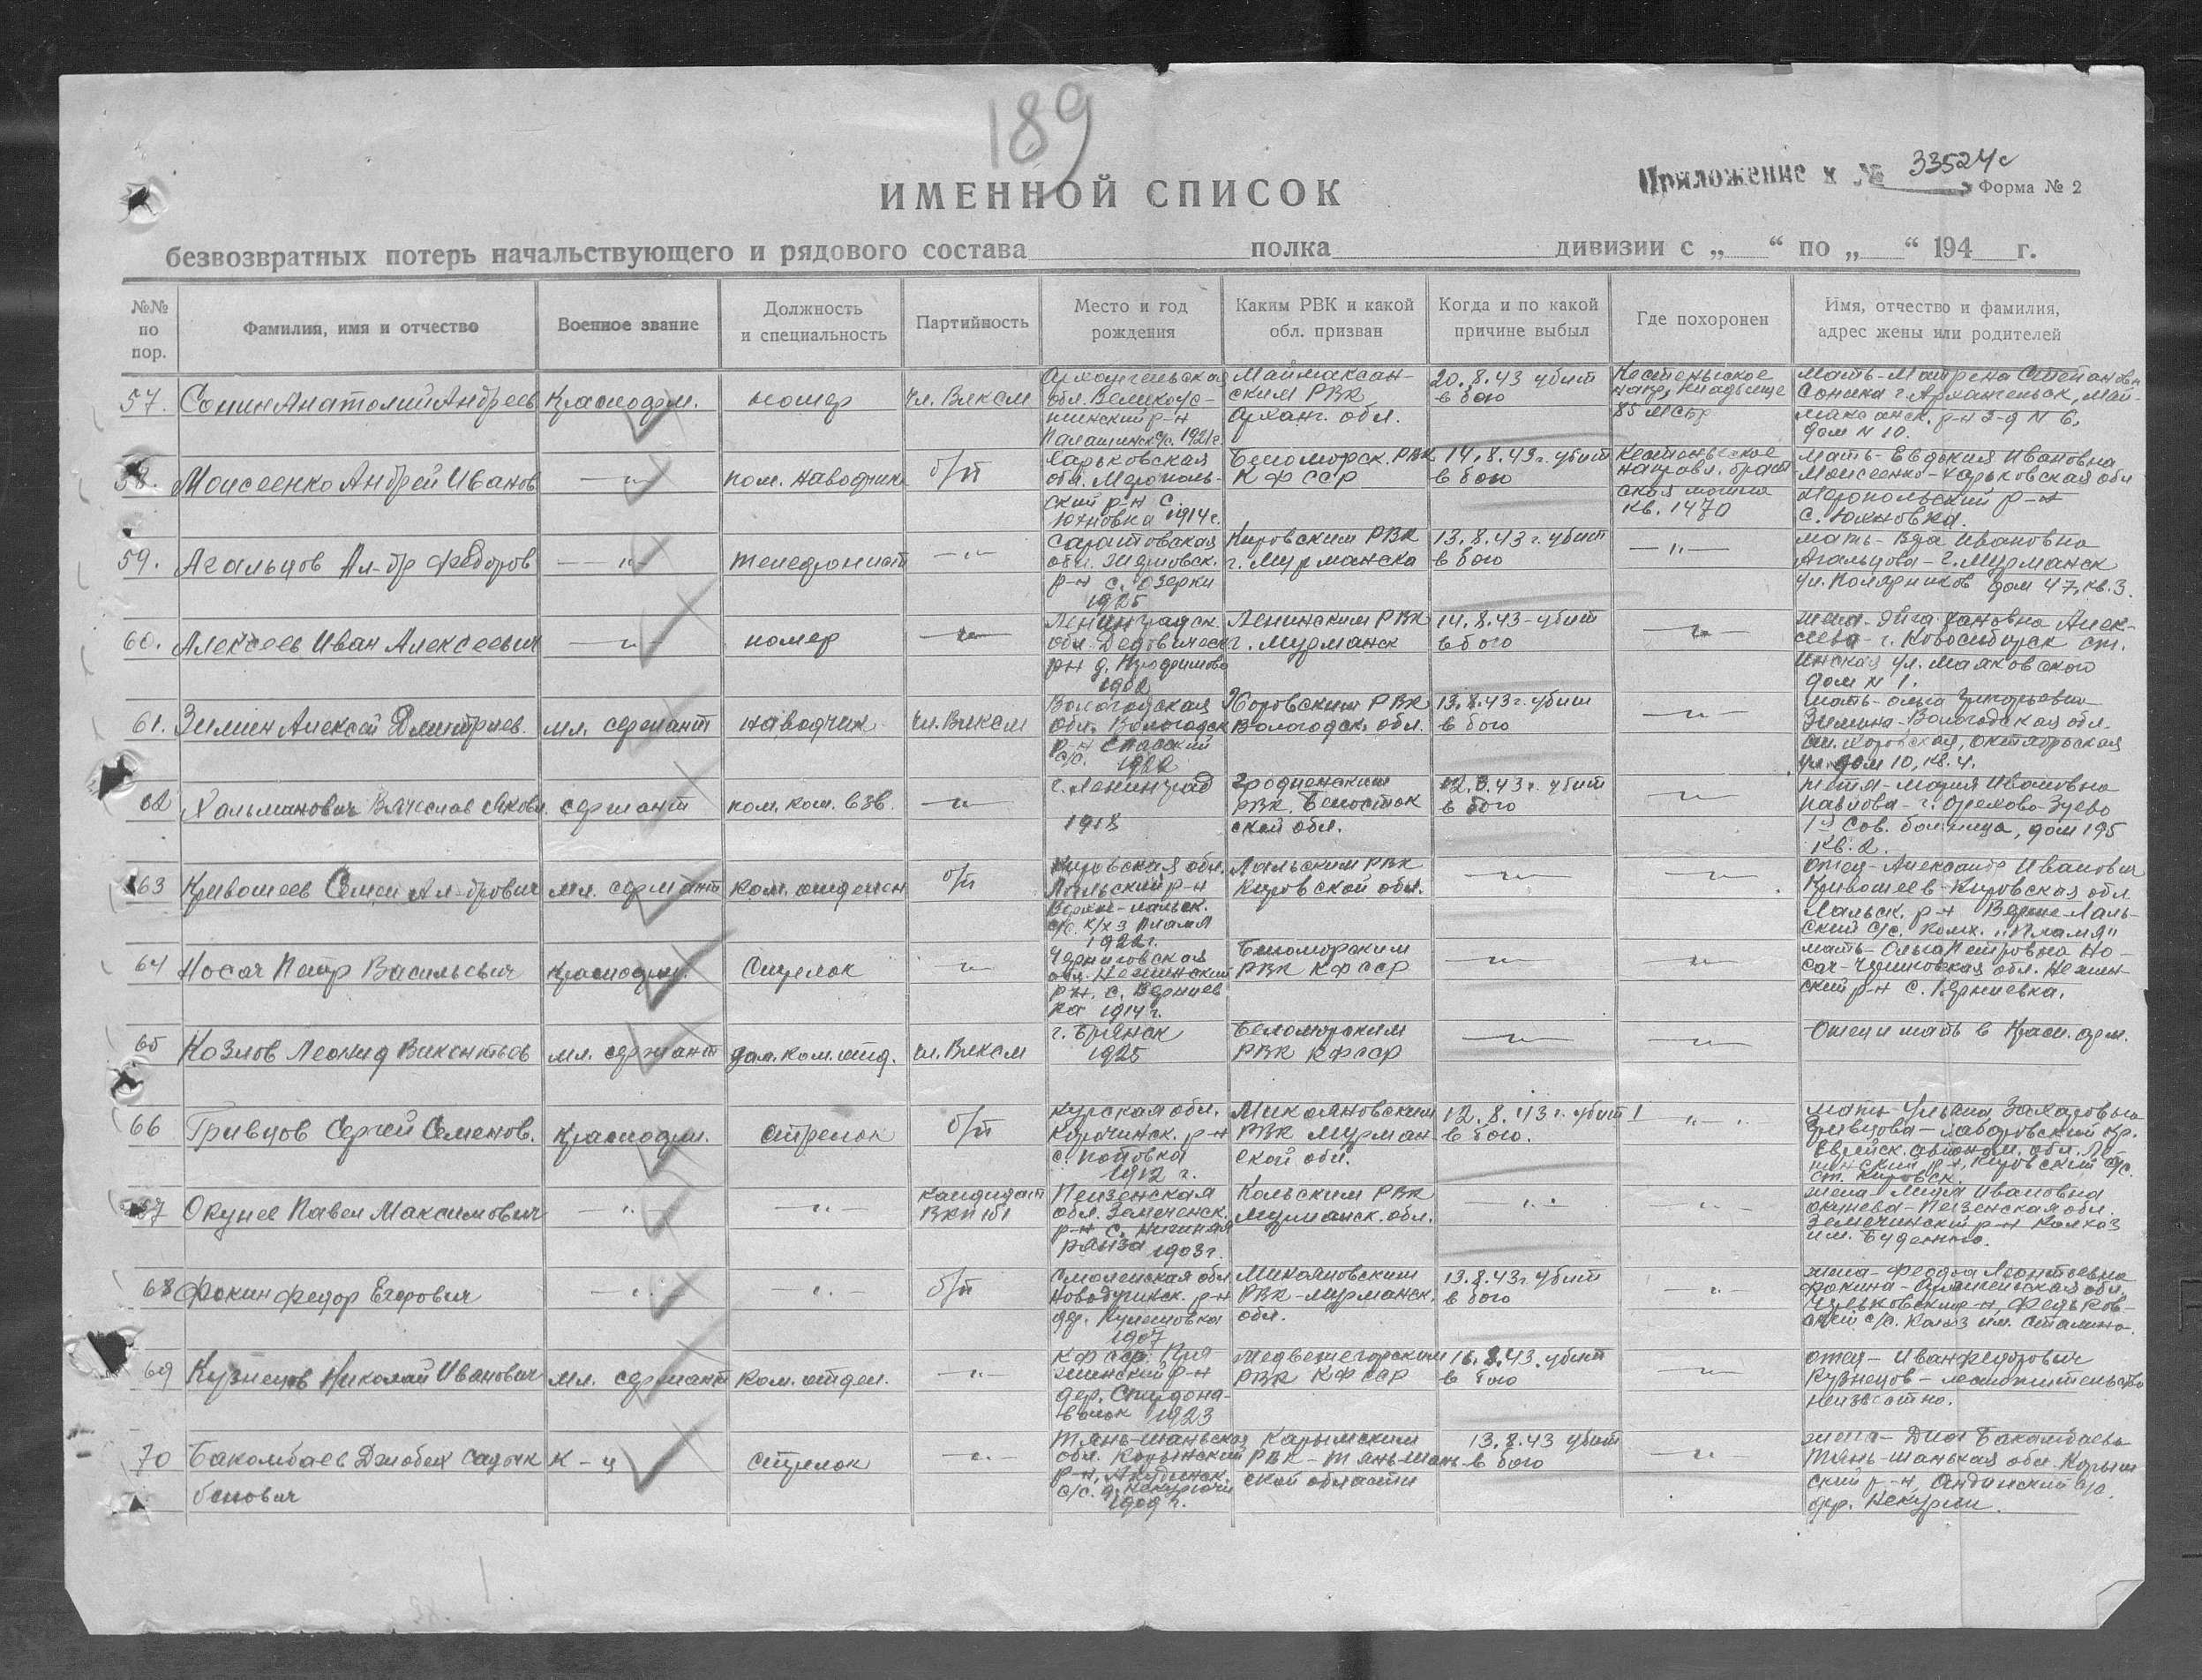 189
Приложение к № 33524с
Форма № 2
ИМЕННОЙ СПИСОК
безвозвратных потерь начальствующего и рядового состава полка дивизии с „ “ по „ “ 194 г.
№№ по пор.
Фамилия, имя и отчество
Военное звание
Должность и специальность
Партийность
Место и год рождения
Каким РВК и какой обл. призван
Когда и по какой причине выбыл
Где похоронен
Имя, отчество и фамилия, адрес жены или родителей
57. Сонин Анатолий Андреев
Красноарм.
номер
чл. ВЛКСМ
Архангельская
обл.
р-н
с/с. 1921 г.
Маймаксан-
ским РВК
Арханг. обл.
20.8.43 убит
в бою
Кестеньгское
напр, кладбище
85 МСБр
Мать - Матрена Степановн
Сонина г. Архангельск, Май-
максанск. р-н
дом № 10.
58. Моисеенко Андрей Иванов
— " —
пом. наводчика
б/п
Харьковская
обл.
ский р-н с.
Юхновка 1914 г.
Беломорск. РВК
КФССР
14.8.43 г. убит
в бою
Кестеньгское
направл. братс
ская могила
кв. 1470
Мать - Евдокия Ивановна
Моисеенко - Харьковская обл
р-н
с. Юхновка.
59. Агальцов Ал-др Федоров
— " —
телефонист
— " —
Саратовская
обл.
р-н с. Озерки
1925
Кировским РВК
г. Мурманска
13.8.43 г. убит
в бою
— " —
мать - Ивановна
Агальцова - г. Мурманск
ул. Полярников дом 47, кв. 3.
60. Алексеев Иван Алексеевич
— " —
номер
— " —
Ленинградск
обл. Дедовическ
р-н д.
1902
Ленинским РВК
г. Мурманск
14.8.43 - убит
в бою
— " —
жена - Алек-
сеева - г. Новосибирск ст.
Инская ул. Маяковского
дом № 1.
61. Зимин Алексей Дмитриев.
мл. сержант
наводчик
чл. ВЛКСМ
Вологодская
обл. Вологодск
р-н Спасский
с/с. 1922
РВК
Вологодск. обл.
13.8.43 г. убит
в бою
— " —
мать - Ольга Григорьевна
Зимина - Вологодская обл.
Октябрьская
ул. дом 10, кв. 4.
62 Хальманович Вячеслав Яковл.
сержант
пом. ком. взв.
— " —
г. Ленинград
1918
Гродненским
РВК Белосток
ской обл.
12.8.43 г. убит
в бою
— " —
тетя - Мария Ивановна
Павлова - г. Орехово-Зуево
1я Сов. больница, дом 195
кв. 2.
63 Кривошеев Семен Ал-дрович
мл. сержант
ком. отделен
б/п
Кировская обл.
Лальский р-н
Верхне-Лальск.
с/с. к/хз Пламя
1922 г.
Лальским РВК
Кировской обл.
— " —
— " —
отец - Александр Иванович
Кривошеев - Кировская обл
Лальск. р-н Верхне-Лаль-
ский с/с. колх. „Пламя"
64 Носач Петр Васильевич
Красноарм.
Стрелок
— " —
Черниговская
обл. Нежинский
р-н. с.
ка 1914 г.
Беломорским
РВК КФССР
— " —
— " —
мать - Ольга Петровна Но-
сач - Черниговская обл. Нежин-
ский р-н с.
65 Козлов Леонид Викентьев
мл. сержант
ком. отд.
чл. ВЛКСМ
г. Брянск
1925
Беломорским
РВК КФССР
— " —
— " —
Отец и мать в Красн. арм.
66 Гривцов Сергей Семенов.
Красноарм.
стрелок
б/п
Курская обл.
Корочинск. р-н
с. Поповка
1912 г.
Микояновским
РВК Мурман
ской обл.
12.8.43 г. убит
в бою.
— " —
мать Ульяна Захаровна
Гривцова - Хабаровский кр.
Еврейск. автоном. обл.
р-н, Кировский с/с.
ст. Кировск.
67 Окунев Павел Максимович
— " —
— " —
кандидат
ВКП(б)
Пензенская
обл. Земеченск.
р-н с.
1903 г.
Кольским РВК
Мурманск. обл.
— " —
— " —
жена - Ивановна
Окунева - Пензенская обл.
Земечинский р-н колхоз
им. Буденного.
68 Фокин Федор Егорович
— " —
— " —
б/п
Смоленская обл
Новодугинск. р-н
дер. Кулешовка
1907
Микояновским
РВК - Мурманск.
обл.
13.8.43 г убит
в бою
— " —
жена - Леонтьевна
Фокина - обл.
р-н,
с/с. колхоз им. Сталина.
69 Кузнецов Николай Иванович
мл. сержант
ком. отдел.
— " —
КФССР Пря-
жинский р-н
дер.
1923
Медвежегорским
РВК КФССР
16.8.43. убит
в бою
— " —
отец - Иван Федорович
Кузнецов - местожительство
неизвестно.
70 Бакомбаев Садык
бекович
К - ц
стрелок
— " —
Тянь-Шаньская
обл.
р-н,
с/с.
1909 г.
РВК - Тянь-Шань
ской области
13.8.43 убит
в бою
— " —
жена - Бакамбаева
Тянь-Шаньская обл.
ский р-н, с/с.
дер.